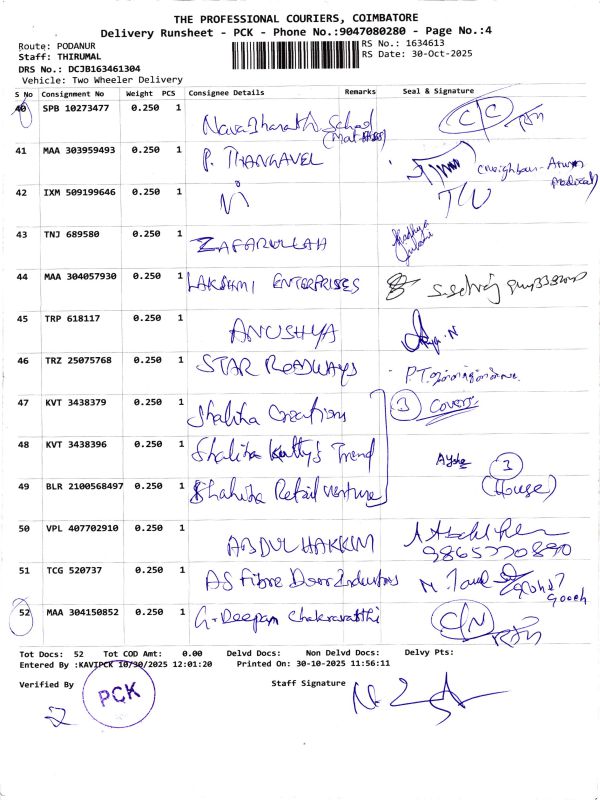 THE PROFESSIONAL COURIERS, COIMBATORE
Delivery Runsheet - PCK - Phone No.:9047080280 - Page No.:4
Route: PODANUR
RS No.: 1634613
Staff: THIRUMAL
RS Date: 30-Oct-2025
DRS No.: DCJB163461304
Vehicle: Two Wheeler Delivery
S No Consignment No Weight PCS Consignee Details Remarks Seal & Signature
40 SPB 10273477 0.250 1 C/C
41 MAA 303959493 0.250 1 P. THANGAVEL
42 IXM 509199646 0.250 1
43 TNJ 689580 0.250 1 ZAFARULLAH
44 MAA 304057930 0.250 1 LAKSHMI ENTERPRISES
45 TRP 618117 0.250 1 ANUSHYA
46 TRZ 25075768 0.250 1 STAR ROADWAYS
47 KVT 3438379 0.250 1 Creations 3 Covers
48 KVT 3438396 0.250 1 Trend 3
49 BLR 2100568497 0.250 1 Retail venture (House)
50 VPL 407702910 0.250 1 ABDUL HAKKIM
9865770890
51 TCG 520737 0.250 1 AS Fibre Door Industries
52 MAA 304150852 0.250 1 G. Deepam Chakravarthi C/N
Tot Docs: 52 Tot COD Amt: 0.00 Delvd Docs: Non Delvd Docs: Delvy Pts:
Entered By :KAVIPCK 10/30/2025 12:01:20 Printed On: 30-10-2025 11:56:11
Verified By
Staff Signature
PCK